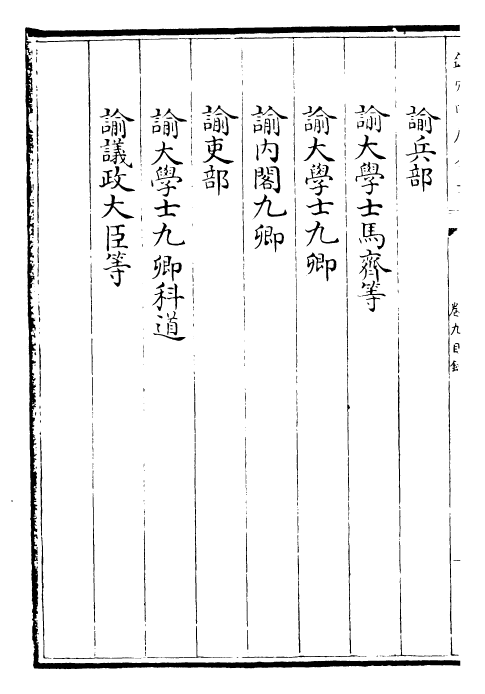 卷九目錄
諭兵部
諭大學士馬齊等
諭大學士九卿
諭內閣九卿
諭吏部
諭大學士九卿科道
諭議政大臣等